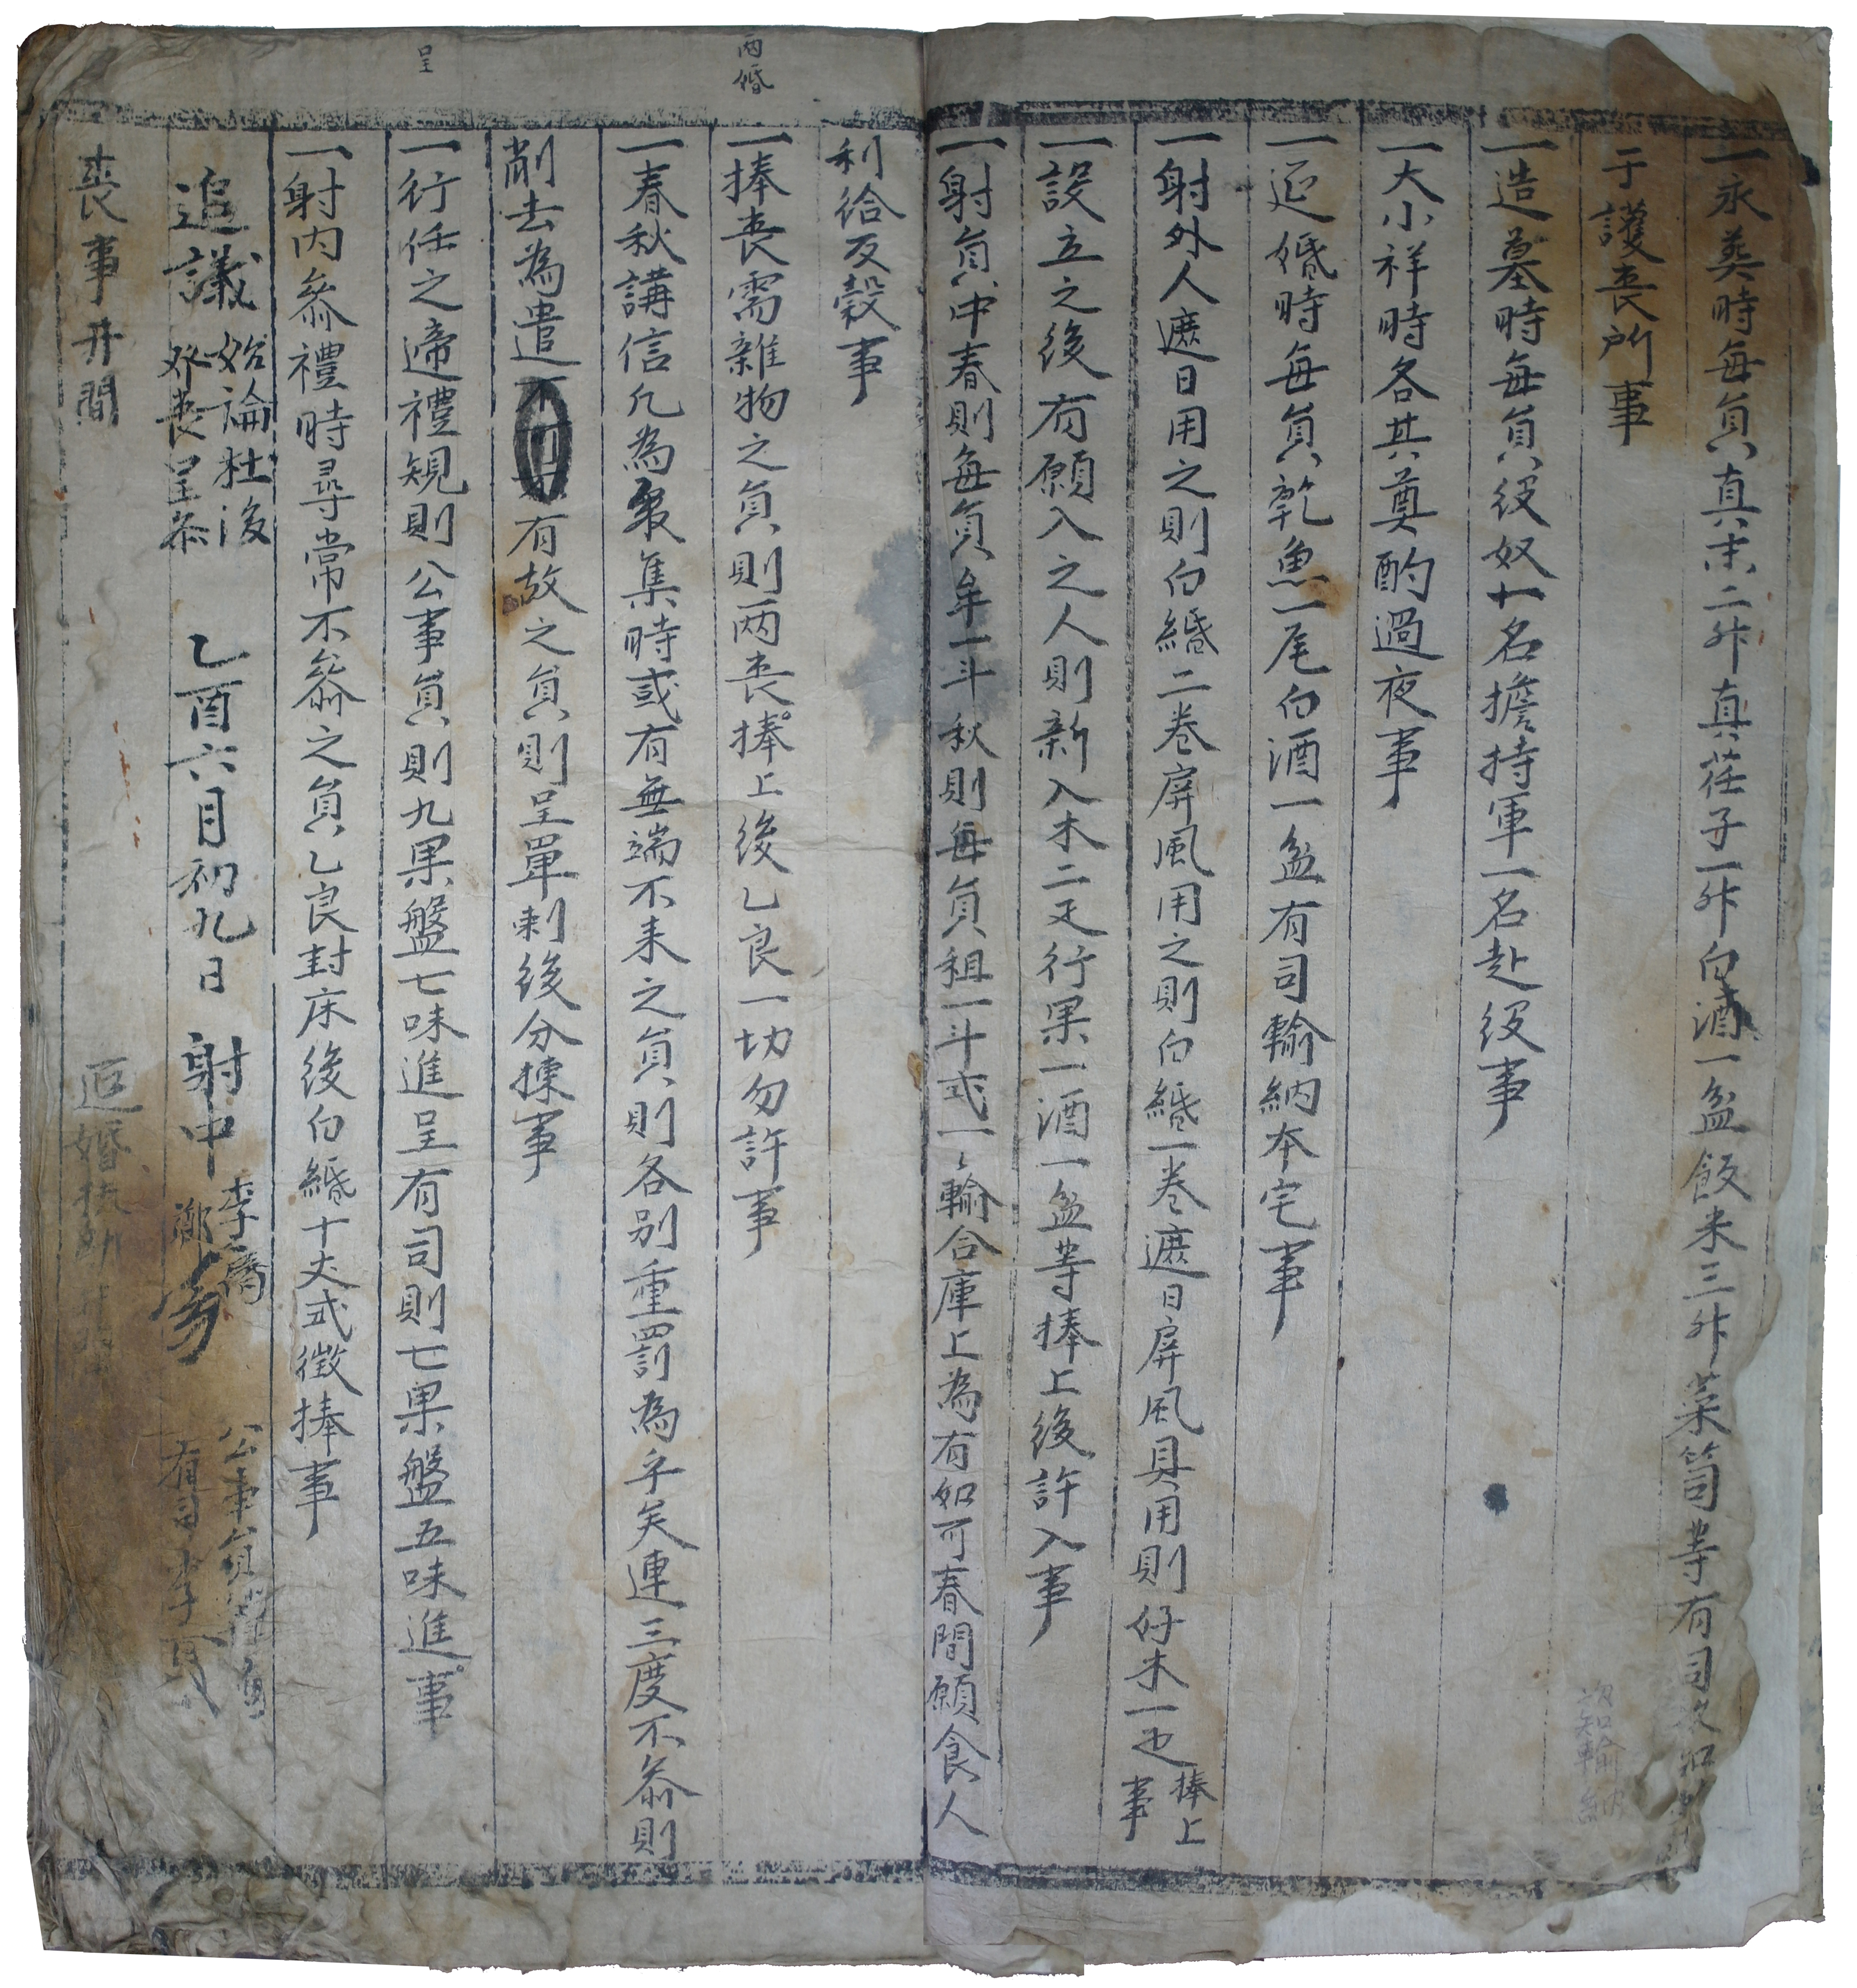 一永葬時每員真末二升真荏子一升白酒一盆飯米三升菜笥等有司
于護喪所事
一造墓時每員役奴十名擔持軍一名赴役事
一大小祥時各其奠酌過夜事
一迎婚時每員乾魚一尾白酒一盆有司輸納本宅事
一射外人遮日用之則白紙二卷屛風用之則白紙一卷遮日屛風具用則好木一疋捧上事
一設立之後有願入之人則新入木二疋行果一酒一盆等捧上後許入事
一射員中春則每員牟一斗秋則每員租一斗式一〻輸合庫上為有如可春間願食人
利給反穀事
兩婚
一捧喪需雜物之員則兩喪捧上後乙良一切勿許事
一春秋講信凡為聚集時或有無端不来之員則各别重罰為乎矣連三度不叅則
削去為遣有故之員則呈單剌後分揀事
呈
一行任之遞禮規則公事員則九果盤七味進呈有司則七果盤五味進事
一射內叅禮時尋常不叅之員乙良封床後白紙十丈式徵捧事
追議 始論杜後發喪呈恭 乙酉六月初九日 射中 李 鄭 公事員 有司李
喪事井間
迎婚扶助